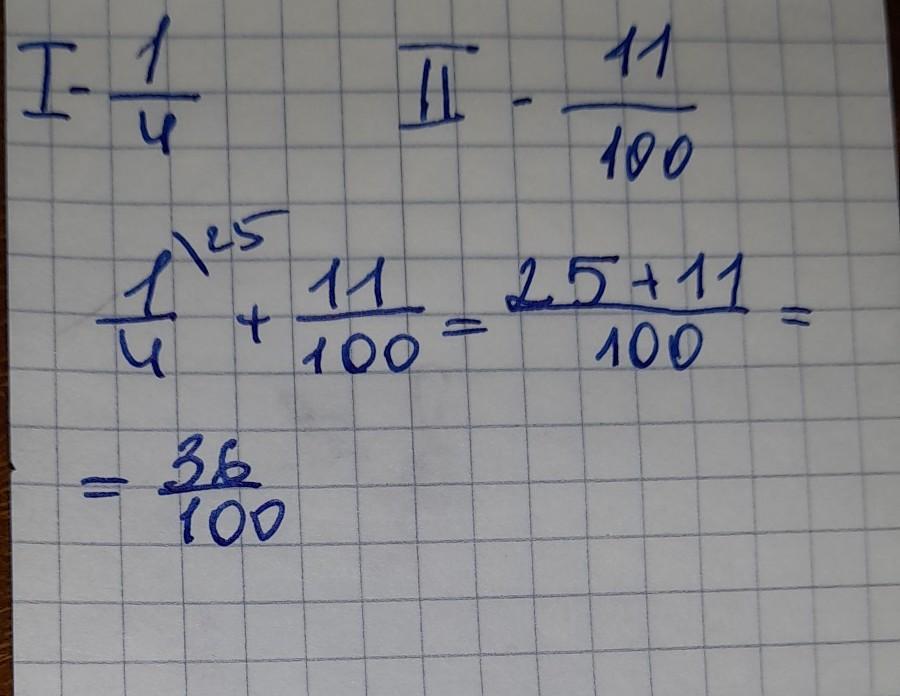 I - 1/4    II - 11/100
1/4 \25 + 11/100 = 25+11/100 =
= 36/100